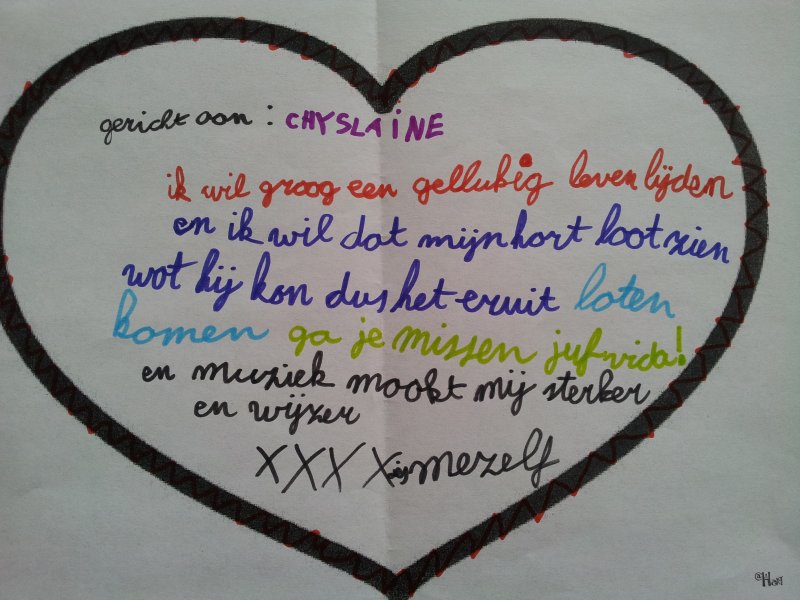 gericht aan : CHYSLAINE
ik wil graag een gellukig leven lijden
en ik wil dat mijn hart laat zien
wat hij kan dus het eruit laten
komen ga je missen juf vida!
en muziek maakt mij sterker
en wijzer
XXX X mezelf